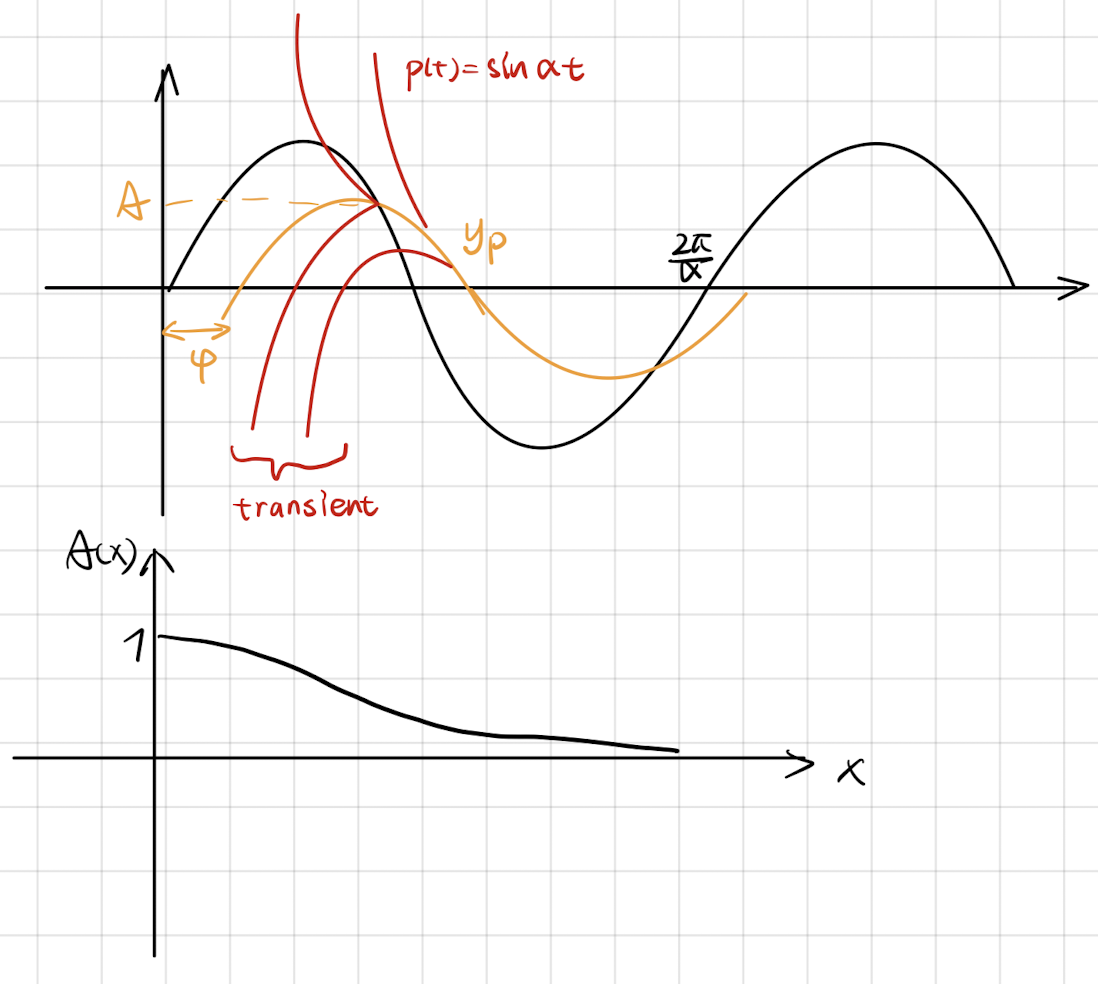 p(t)= sin αt
A
yp
2π/α
φ
transient
A(x)
1
x